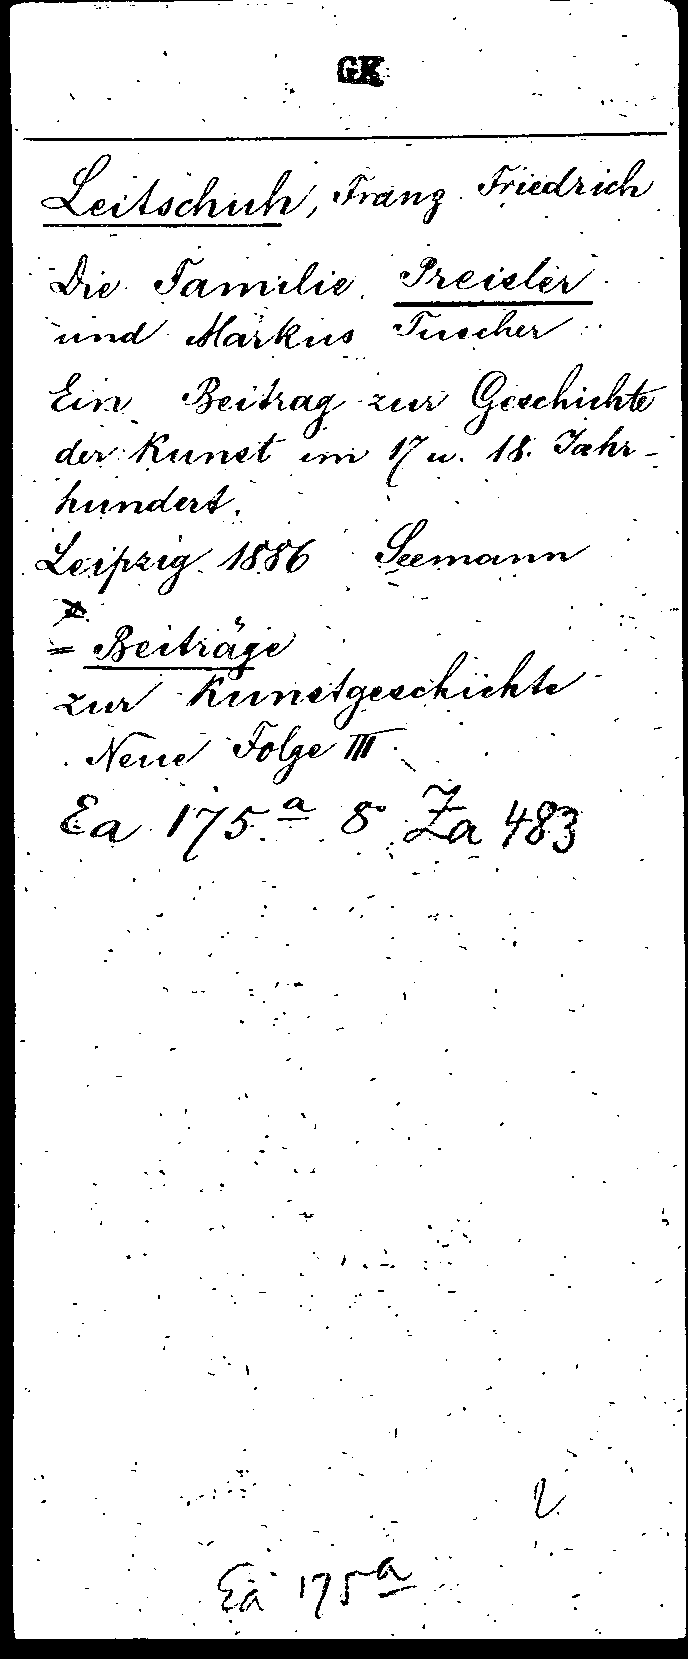 GK
Leitschuh, Franz Friedrich
Die Familie Preisler
und Markus Tuscher
Ein Beitrag zur Geschichte
der Kunst im 17 u. 18. Jahr-
hundert.
Leipzig 1886 Seemann
= Beiträge
zur Kunstgeschichte
Neue Folge III
Ea 175 a 8° Za 483
Ea 175 a